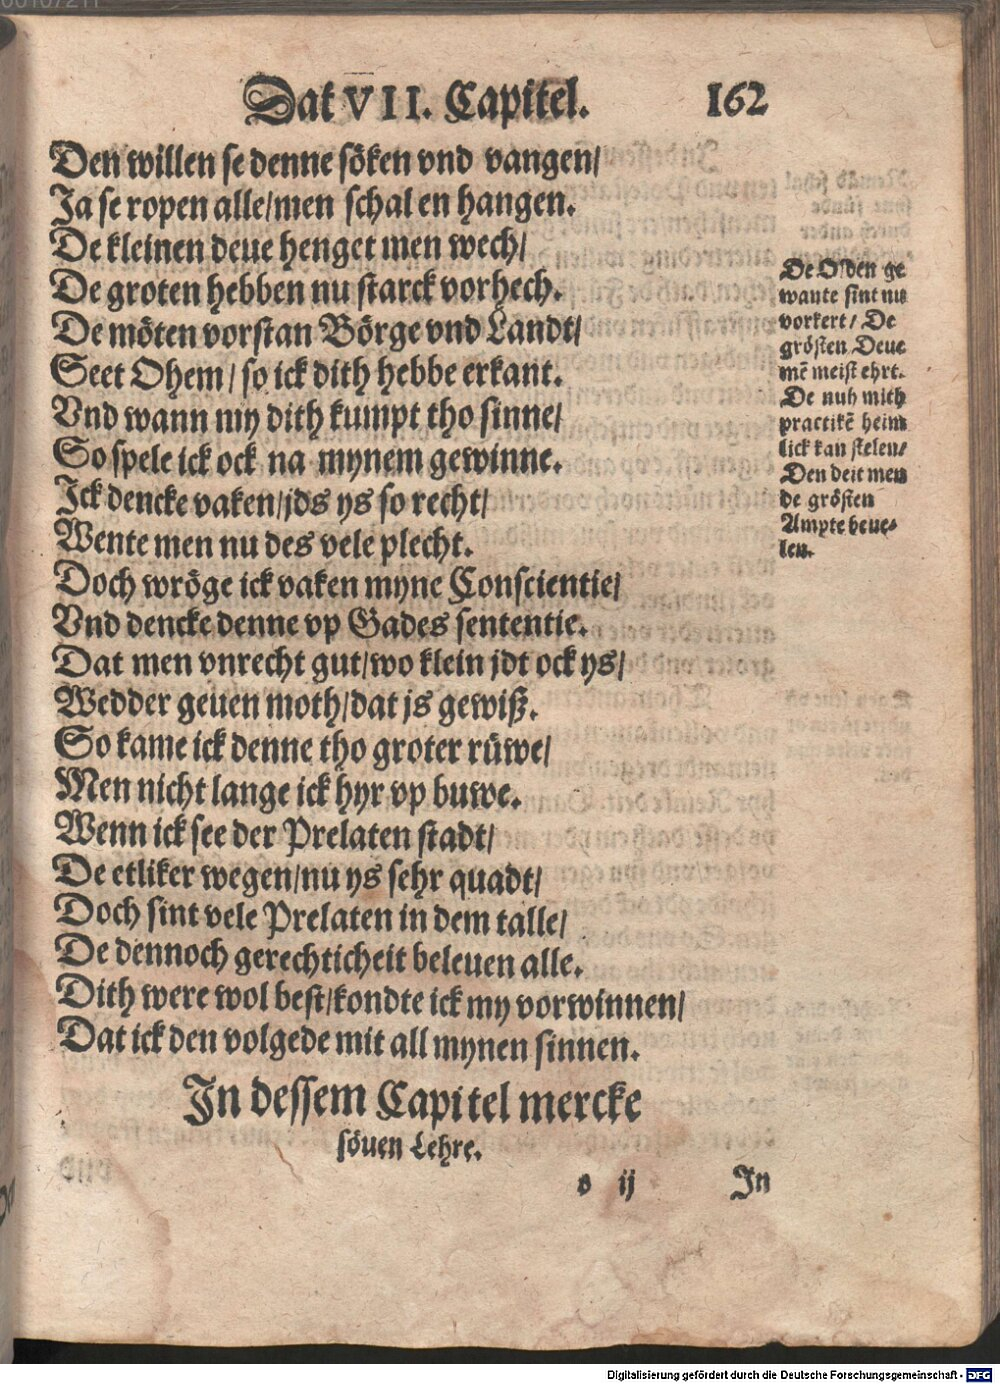 Dat VII. Capitel. 162
Den willen se denne söken vnd vangen/
Ja se ropen alle/men schal en hangen.
De kleinen deue henget men wech/
De groten hebben nu starck vorhech.
De möten vorstan Börge vnd Landt/
Seet Ohem/ so ick dith hebbe erkant.
Vnd wann my dith kumpt tho sinne/
So spele ick ock na mynem gewinne.
Ick dencke vaken/jds ys so recht/
Wente men nu des vele plecht.
Doch wröge ick vaken myne Conscientie/
Vnd dencke denne vp Gades sententie.
Dat men vnrecht gut/wo klein jdt ock ys/
Wedder geuen moth/dat js gewiß.
So kame ick denne tho groter rüwe/
Men nicht lange ick hyr vp buwe.
Wenn ick see der Prelaten stadt/
De etliker wegen/nu ys sehr quadt/
Doch sint vele Prelaten in dem talle/
De dennoch gerechticheit beleuen alle.
Dith were wol best/kondte ick my vorwinnen/
Dat ick den volgede mit all mynen sinnen.
De Olden ge
wante sint nu
vorkert/ De
grösten Deue
mē meist ehrt.
De nuh mith
practikē heim
lick kan stelen/
Den deit men
de grösten
Ampte beue-
len.
In dessem Capitel mercke
söuen Lehre.
v ij In
Digitalisierung gefördert durch die Deutsche Forschungsgemeinschaft - DFG